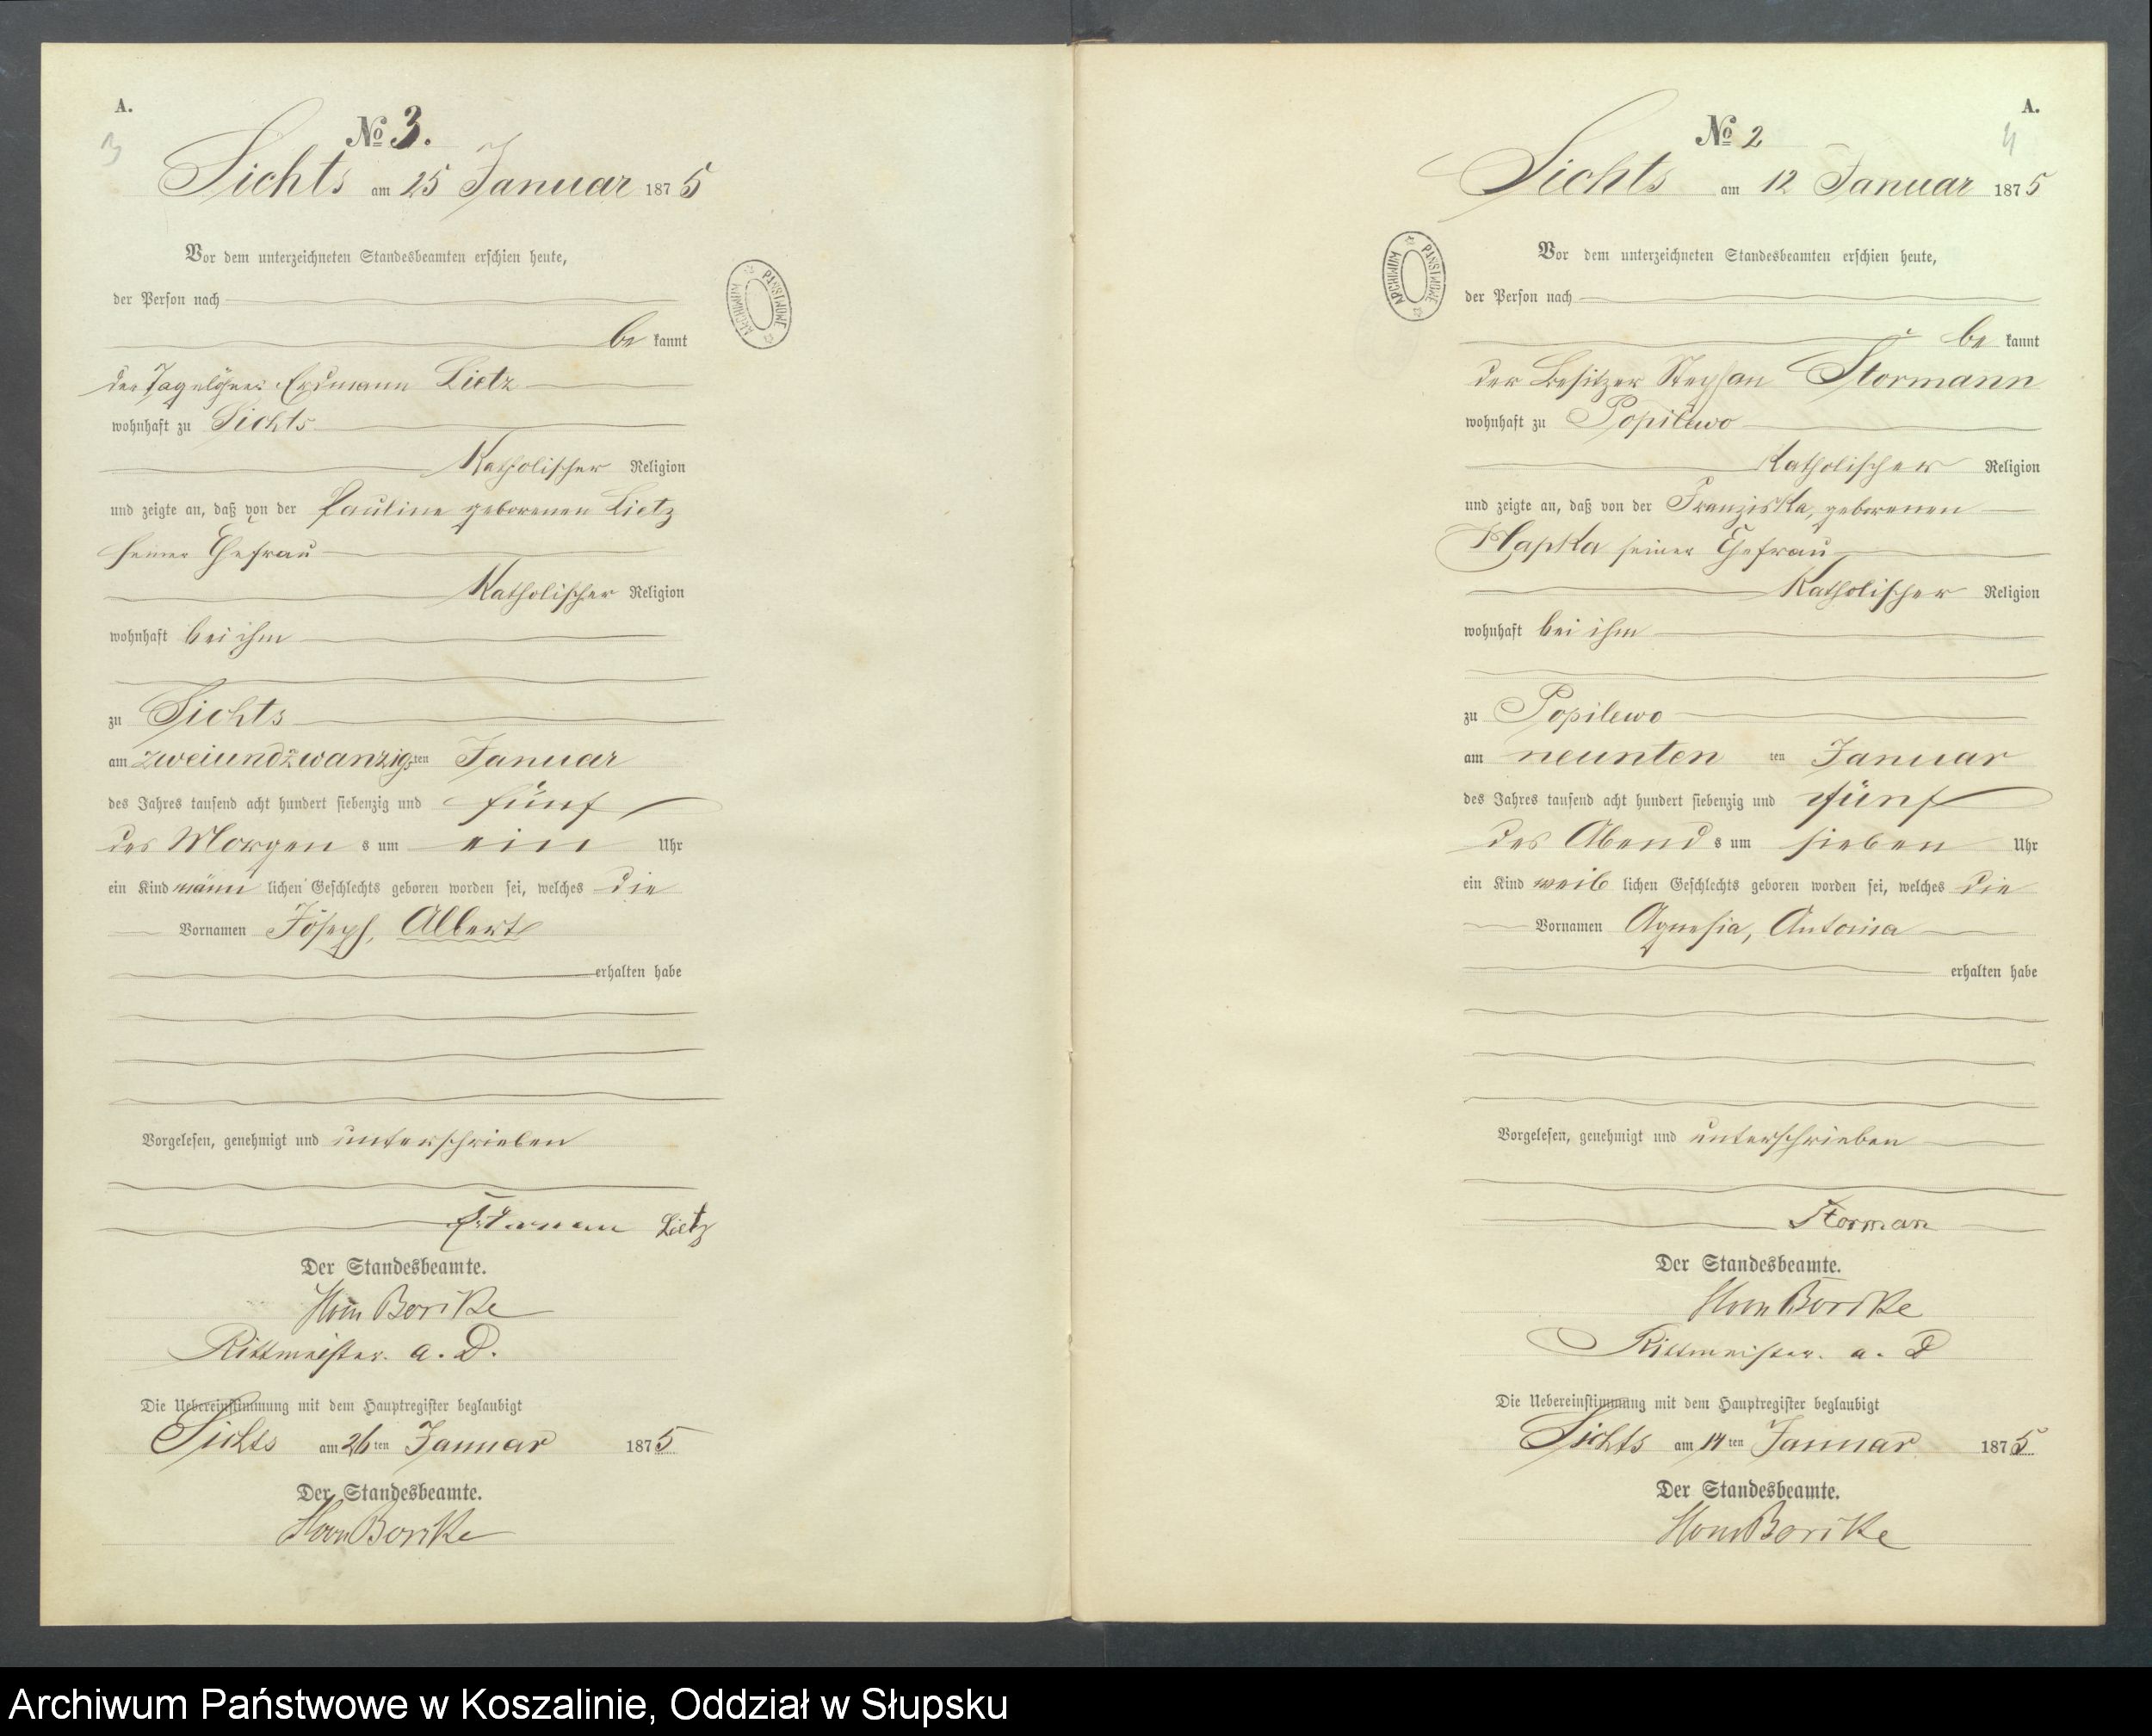 A.
3
No 3.
Sichts am 25 Januar 1875
Vor dem unterzeichneten Standesbeamten erschien heute,
der Person nach
be kannt
der Tagelöhner Erdmann Lietz
wohnhaft zu Sichts
Katholischer Religion
und zeigte an, daß von der Pauline geborenen Lietz
seiner Ehefrau
Katholischer Religion
wohnhaft bei ihm
zu Sichts
am zweiundzwanzigsten Januar
des Jahres tausend acht hundert siebenzig und fünf
des Morgens um ein Uhr
ein Kind männlichen Geschlechts geboren worden sei, welches die
Vornamen Joseph, Albert
erhalten habe
Vorgelesen, genehmigt und unterschrieben
Lietz
Der Standesbeamte.
Rittmeister. a. D.
Die Uebereinstimmung mit dem Hauptregister beglaubigt
Sichts am 26ten Januar 1875
Der Standesbeamte.
ARCHIWUM PAŃSTWOWE
A.
4
No 2
Sichts am 12 Januar 1875
Vor dem unterzeichneten Standesbeamten erschien heute,
der Person nach
be kannt
der Besitzer Stephan Stormann
wohnhaft zu Popilewo
Katholischer Religion
und zeigte an, daß von der Franziska, geborenen
Klapka seiner Ehefrau
Katholischer Religion
wohnhaft bei ihm
zu Popilewo
am neunten ten Januar
des Jahres tausend acht hundert siebenzig und fünf
des Abends um sieben Uhr
ein Kind weiblichen Geschlechts geboren worden sei, welches die
Vornamen Agnesia, Antonia
erhalten habe
Vorgelesen, genehmigt und unterschrieben
Storman
Der Standesbeamte.
Rittmeister. a. D
Die Uebereinstimmung mit dem Hauptregister beglaubigt
Sichts am 14ten Januar 1875
Der Standesbeamte.
ARCHIWUM PAŃSTWOWE
Archiwum Państwowe w Koszalinie, Oddział w Słupsku